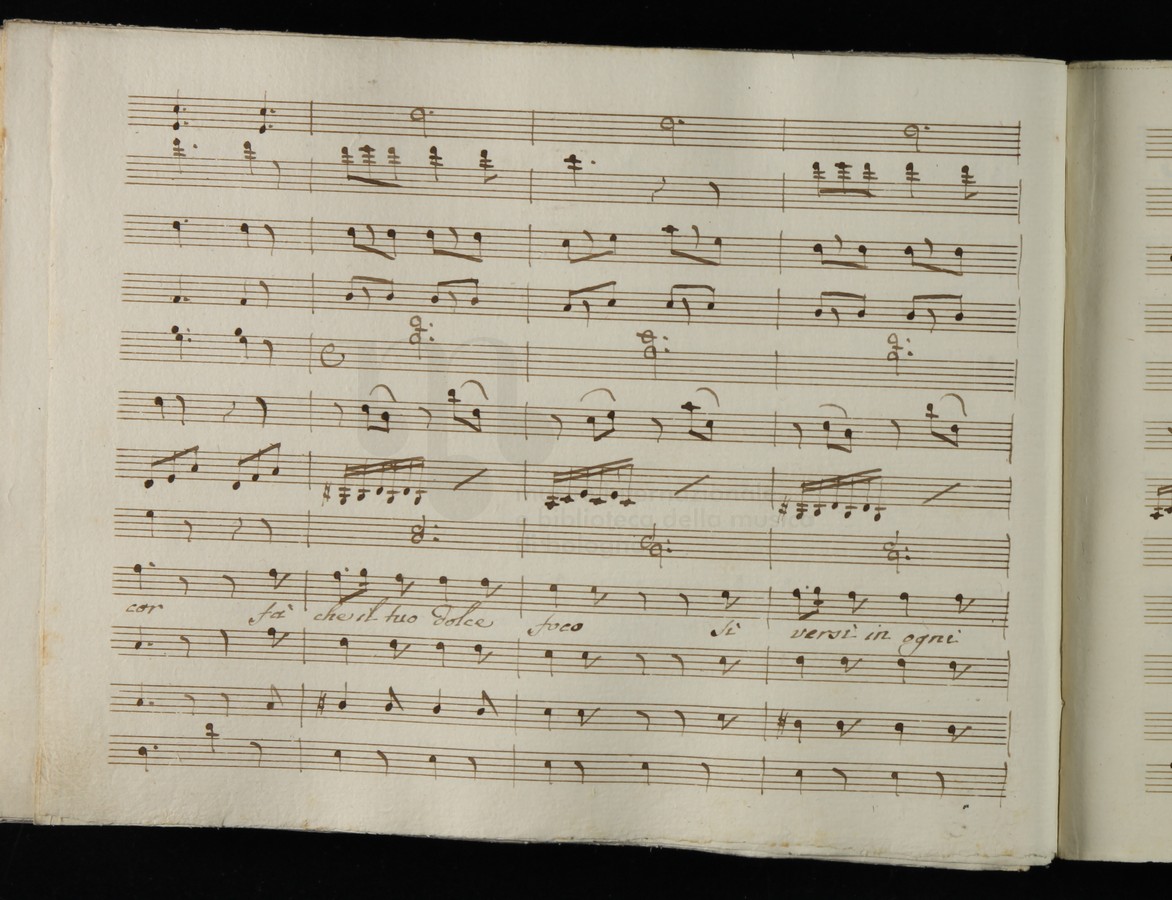 cor fà che il tuo dolce foco Si versi in ogni
e biblioteca della musica